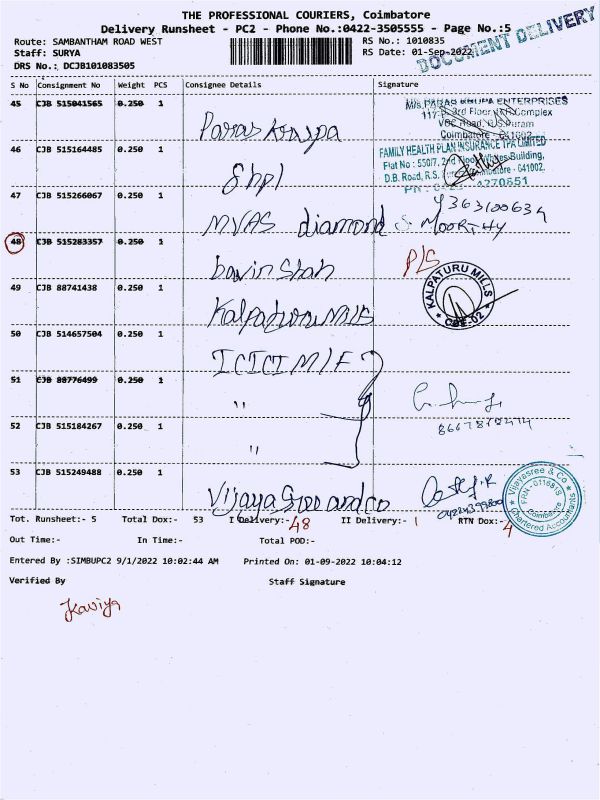 THE PROFESSIONAL COURIERS, Coimbatore
Delivery Runsheet - PC2 - Phone No.:0422-3505555 - Page No.:5
Route: SAMBANTHAM ROAD WEST
RS No.: 1010835
Staff: SURYA
RS Date: 01-Sep-2022
DOCUMENT DELIVERY
DRS No.: DCJB101083505
S No Consignment No Weight PCS Consignee Details Signature
45 CJB 515041565 0.250 1
Paras krupa
M/s.PARAS KRUPA ENTERPRISES
3rd Floor Complex
Coimbatore - 641002
46 CJB 515164485 0.250 1
fhpl
FAMILY HEALTH PLAN INSURANCE TPA LIMITED
Flat No : 550/7, 2nd Floor Building,
D.B. Road, R.S. Coimbatore - 641002.
47 CJB 515266067 0.250 1
MVAS diamond
9363100634
S MOORTHY
48 CJB 515283357 0.250 1
bavin shah
P/S
49 CJB 88741438 0.250 1
Kalpaturu Mills
KALPATURU MILLS
CBE-02
50 CJB 514657504 0.250 1
ICICI M/F
51 CJB 88776499 0.250 1
"
52 CJB 515184267 0.250 1
"
53 CJB 515249488 0.250 1
Vijaya Sree and co
Vijayasree & Co
Coimbatore
Chartered Accountants
Tot. Runsheet:- 5 Total Dox:- 53 I Delivery:- 48 II Delivery:- 1 RTN Dox:- 4
Out Time:- In Time:- Total POD:-
Entered By :SIMBUPC2 9/1/2022 10:02:44 AM Printed On: 01-09-2022 10:04:12
Verified By Staff Signature
Kaviya